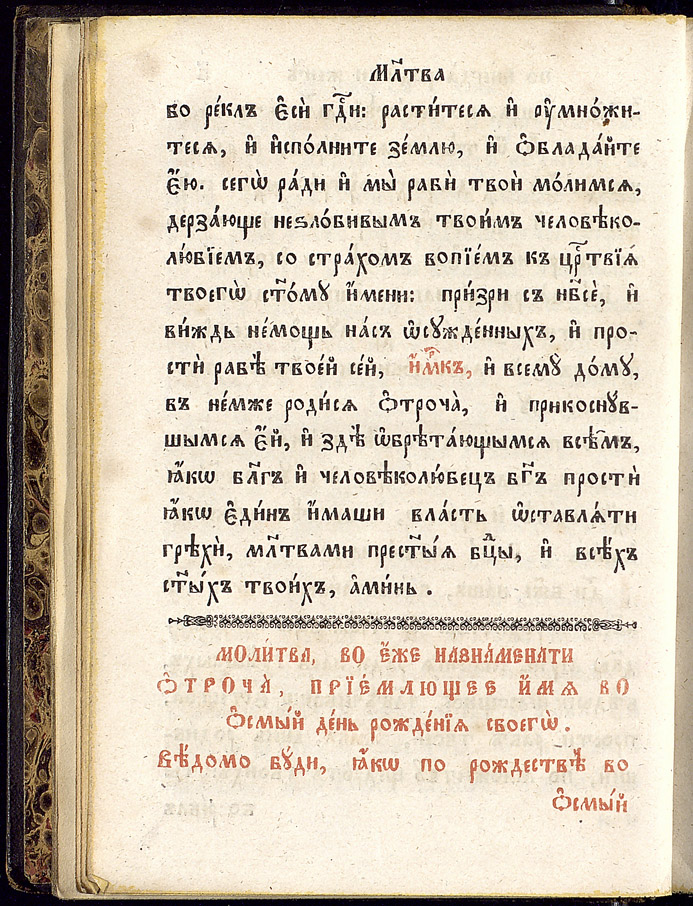 Мл҃тва
бо ре́клъ є҆сѝ гд҇и: расти́тесѧ и҆ ᲂу҆мно́жи-
тесѧ, и҆ и҆спо́лните зе́млю, и҆ ѻ҆блада́йте
є҆́ю. сегѡ̀ ра́ди и҆ мы̀ рабѝ твоѝ мо́лимсѧ,
дерза́юще неѕло́бивымъ твои́мъ человѣко-
лю́бїемъ, со стра́хомъ вопїе́мъ къ црⷭ҇твїѧ́
твоегѡ̀ ст҃о́мꙋ и҆́мени: при́зри съ нб҃сѐ, и҆
ви́ждь не́мощь на́съ ѡ҆сꙋжде́нныхъ, и҆ про-
стѝ рабѣ̀ твое́й се́й, и҆́мкⷬ҇ъ, и҆ всемꙋ̀ до́мꙋ,
въ не́мже роди́сѧ ѻ҆троча̀, и҆ прикоснꙋв-
шымсѧ є҆́й, и҆ здѣ̀ ѡ҆брѣта́ющымсѧ всѣ̑мъ,
ꙗ҆́кѡ бл҃гъ и҆ человѣколю́бецъ бг҃ъ простѝ
ꙗ҆́кѡ є҆ди́нъ и҆́маши вла́сть ѡ҆ставлѧ́ти
грѣхѝ, мл҃твами прест҃ы́ѧ бцⷣы, и҆ всѣ́хъ
ст҃ы́хъ твои́хъ, а҆ми́нь.
молитва, во є҆́же назнаменати
ѻ҆троча̀, прїе́млющее и҆́мѧ во
ѻ҆смы́й де́нь рожде́нїѧ своегѡ̀.
Вѣ́домо бꙋ́ди, ꙗ҆́кѡ по рождествѣ̀ во
ѻ҆смы́й